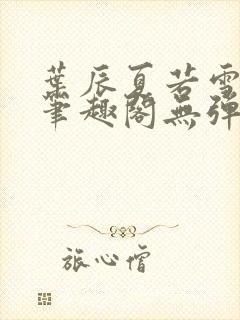 葉辰夏若雪
筆趣閣無彈
旅心僧